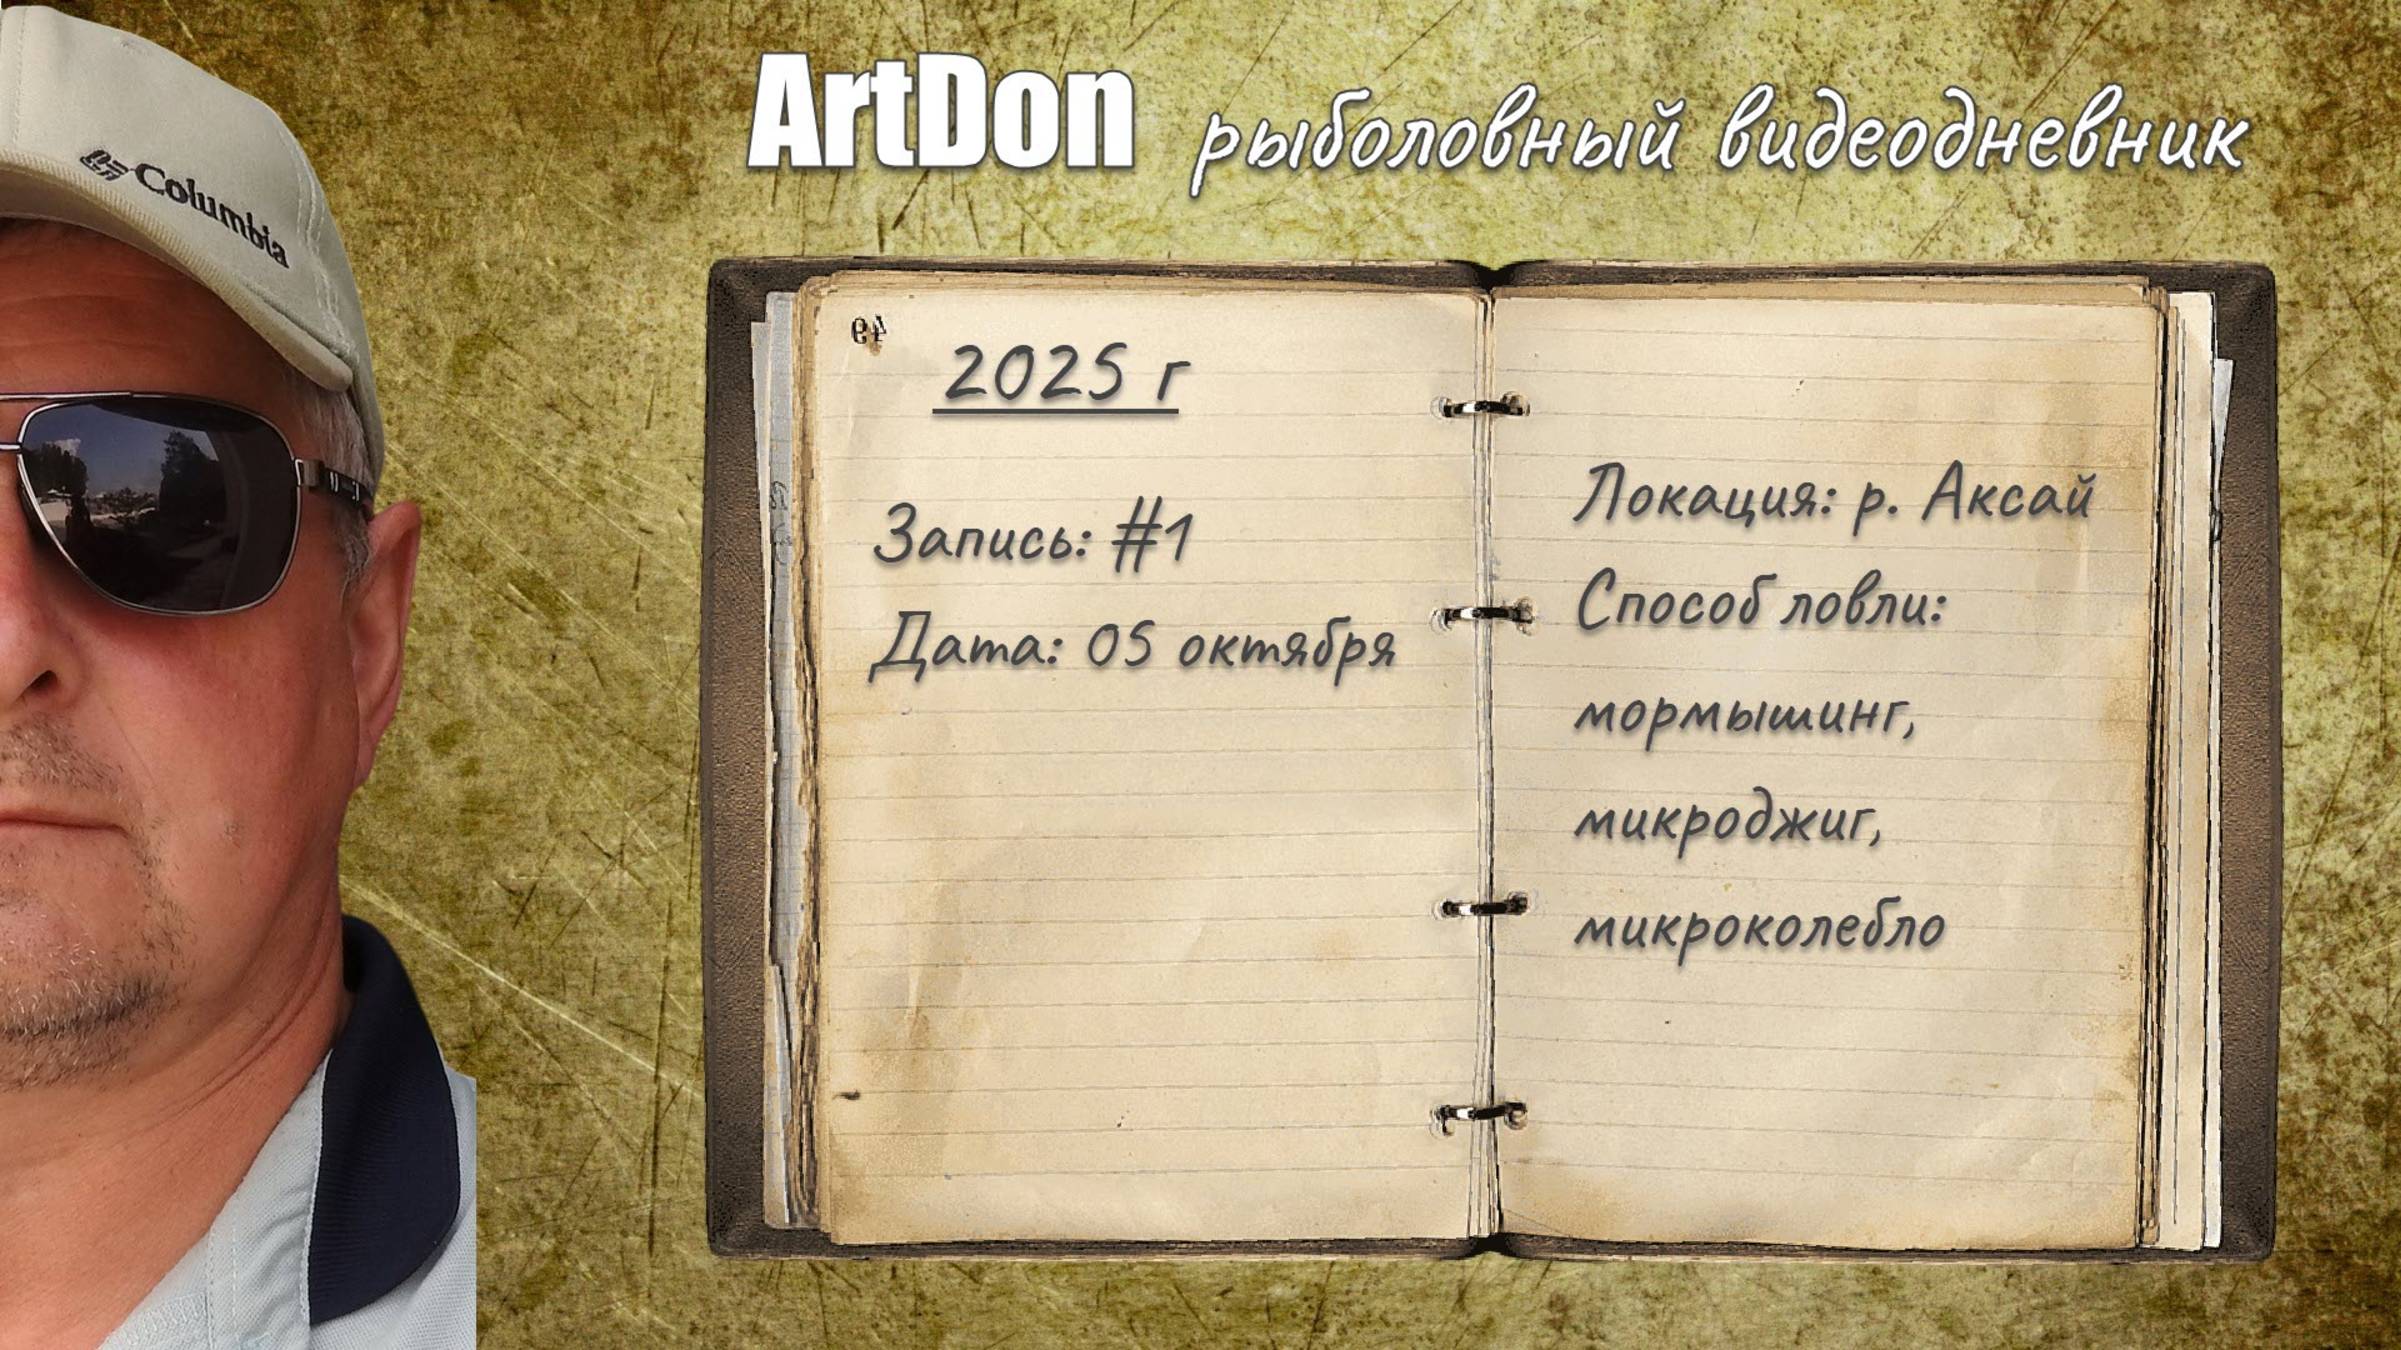 Columbia
ArtDon рыболовный видеодневник
49
2025 г
Запись: #1
Дата: 05 октября
Локация: р. Аксай
Способ ловли:
мормышинг,
микроджиг,
микроколебло